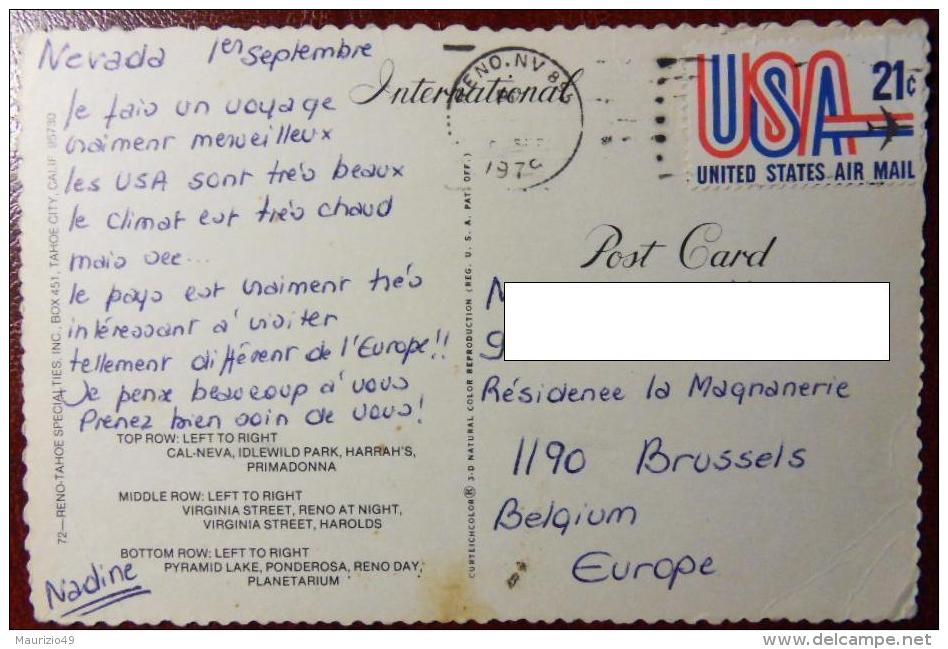 Nevada 1er Septembre
International
RENO, NV
21¢
USA
UNITED STATES AIR MAIL
je fais un voyage
vraiment merveilleux
les USA sont très beaux
le climat est très chaud
mais sec...
le pays est vraiment très
intéressant à visiter
tellement différent de l'Europe!!
Je pense beaucoup à vous
Prenez bien soin de vous!
TOP ROW: LEFT TO RIGHT
CAL-NEVA, IDLEWILD PARK, HARRAH'S,
PRIMADONNA
MIDDLE ROW: LEFT TO RIGHT
VIRGINIA STREET, RENO AT NIGHT,
VIRGINIA STREET, HAROLDS
BOTTOM ROW: LEFT TO RIGHT
PYRAMID LAKE, PONDEROSA, RENO DAY,
PLANETARIUM
Nadine
72—RENO-TAHOE SPECIALTIES, INC., BOX 451, TAHOE CITY, CALIF. 95730
CURTEICHCOLOR® 3-D NATURAL COLOR REPRODUCTION (REG. U. S. A. PAT. OFF.)
Post Card
Résidence la Magnanerie
1190 Brussels
Belgium
Europe
Maurizio49